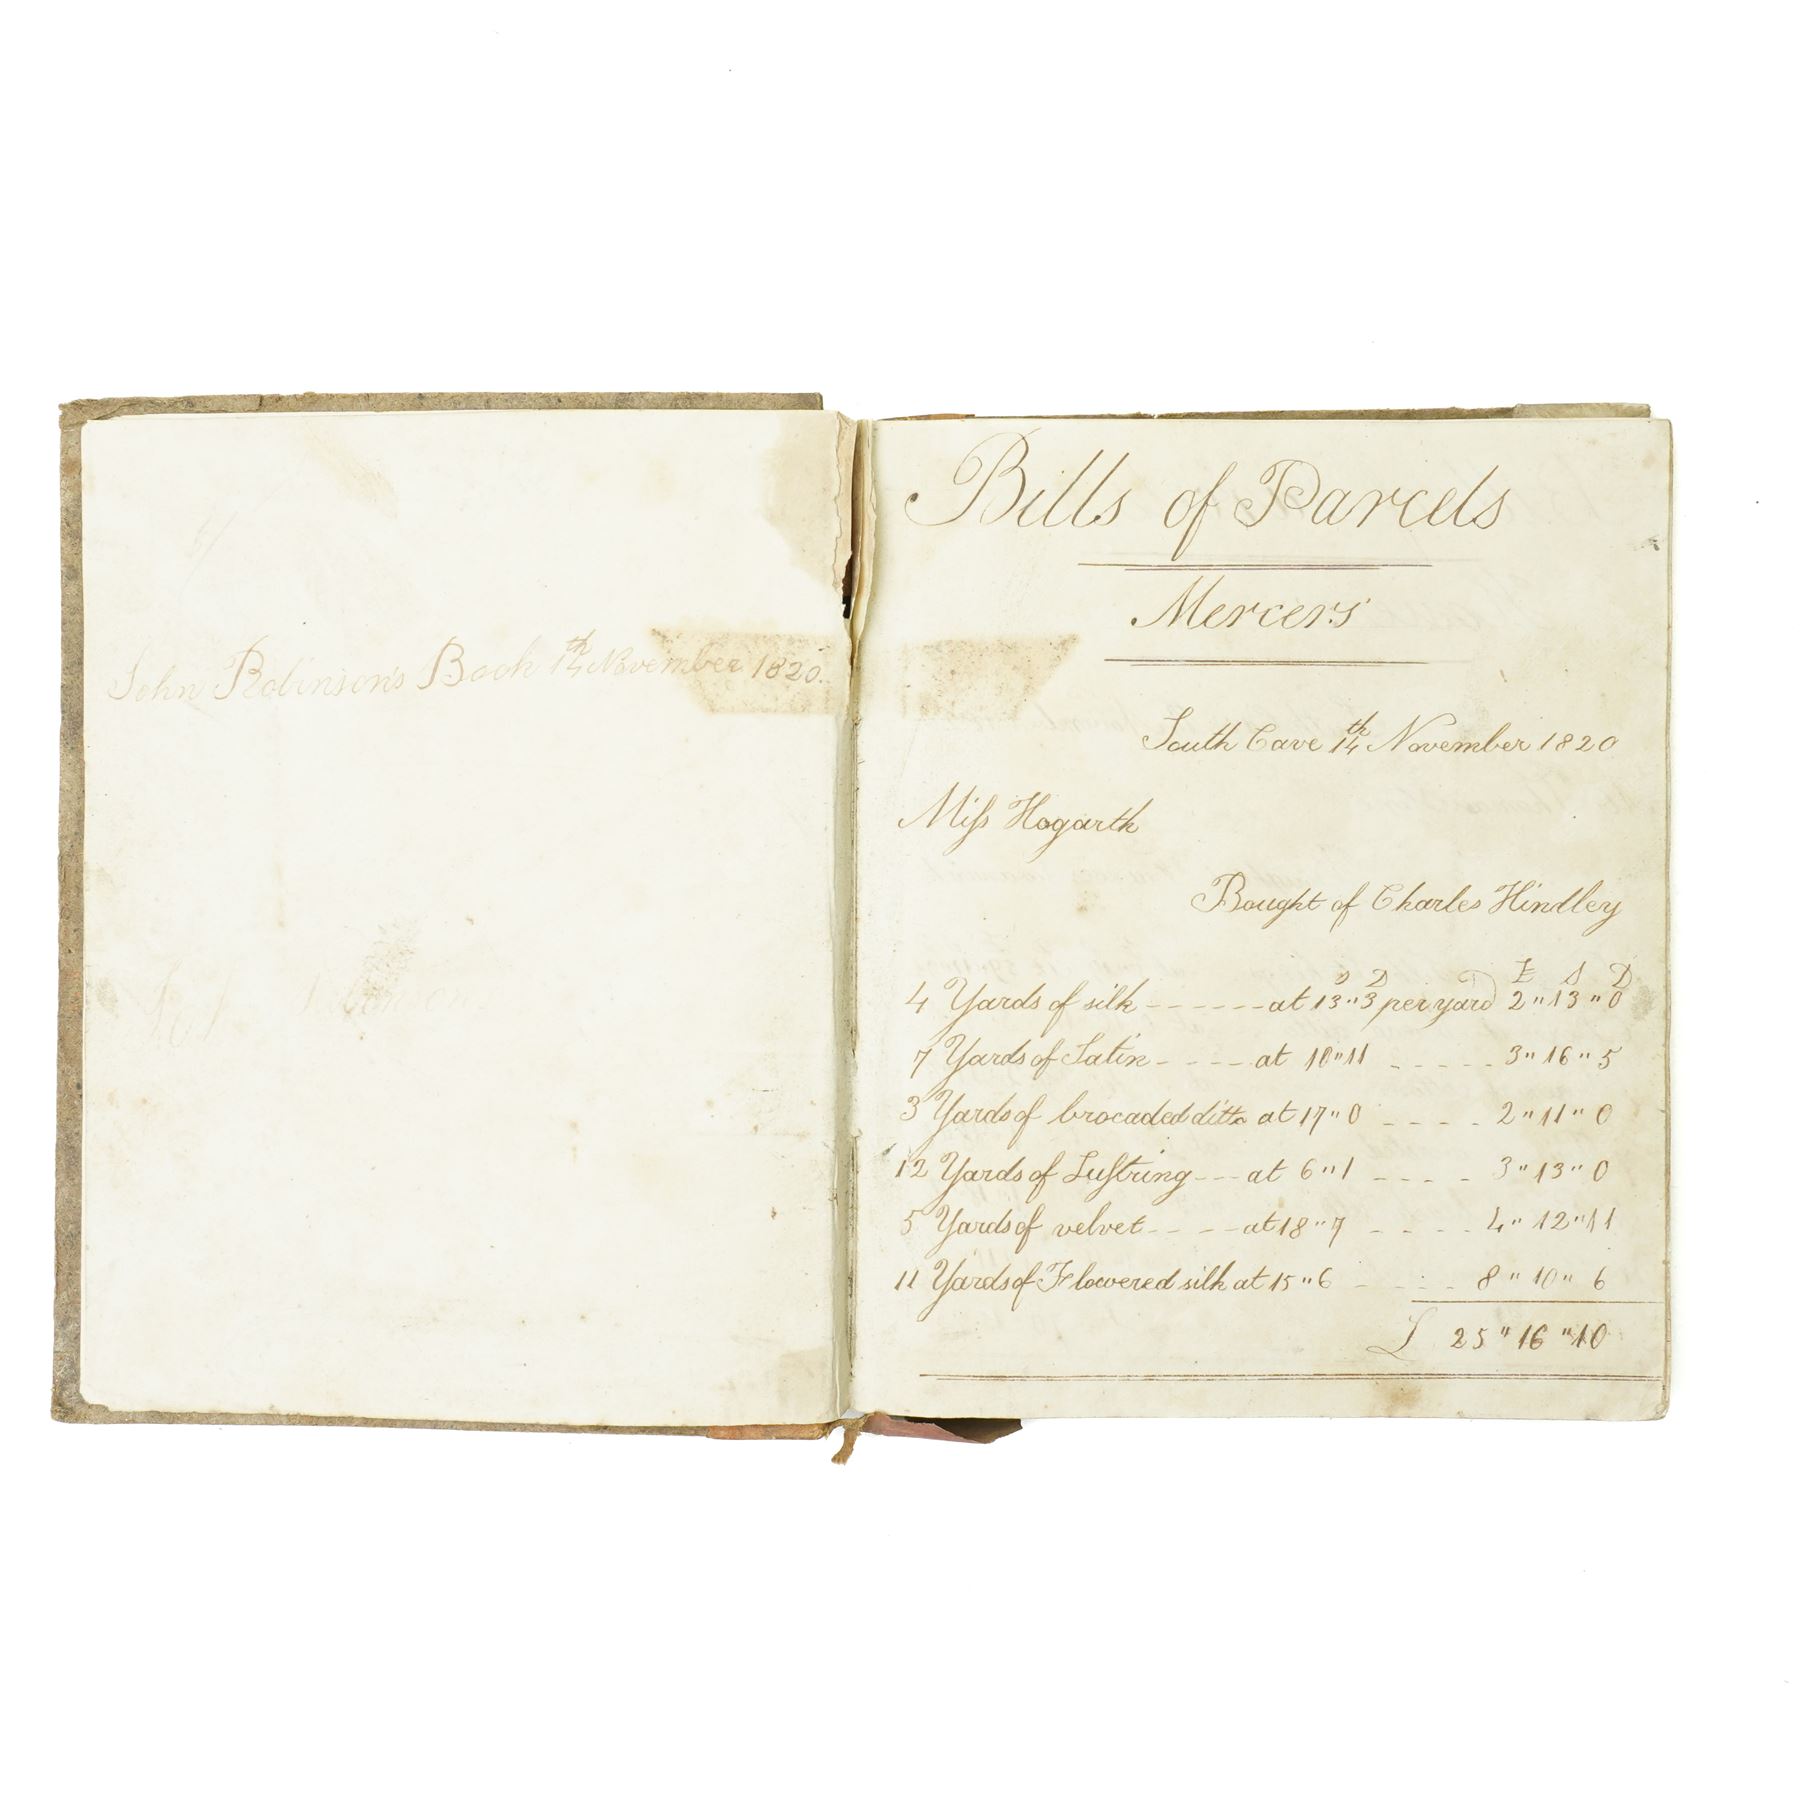 John Robinson's Book 14th November 1820.
Bills of Parcels
Mercers
South Cave 14th November 1820
Miſs Hogarth
Bought of Charles Hindley
S D £ S D
4 Yards of silk ------ at 13"3 per yard 2"13"0
7 Yards of Satin ---- at 10"11 ----- 3"16"5
3 Yards of brocaded ditto at 17"0 ---- 2"11"0
12 Yards of Luſtring --- at 6"1 ---- 3"13"0
5 Yards of velvet ---- at 18"7 ---- 4"12"11
11 Yards of Flowered silk at 15"6 ---- 8"10"6
£ 25"16"10